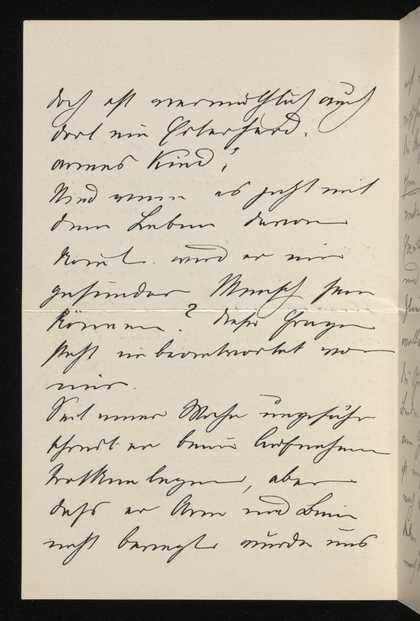 doch ist vermuthlich auch
dort ein
armes Kind!
Und wenn es jetzt mit
dem Leben davon
kommt wird er ein
gesunder Mensch sein
können? diese Frage
steht unbeantwortet vor
mir.
Seit einer Woche ungefähr
er beim Aufnehmen
Trockenlegen, aber
dass er Arm und Bein
nicht bewegte wurde uns